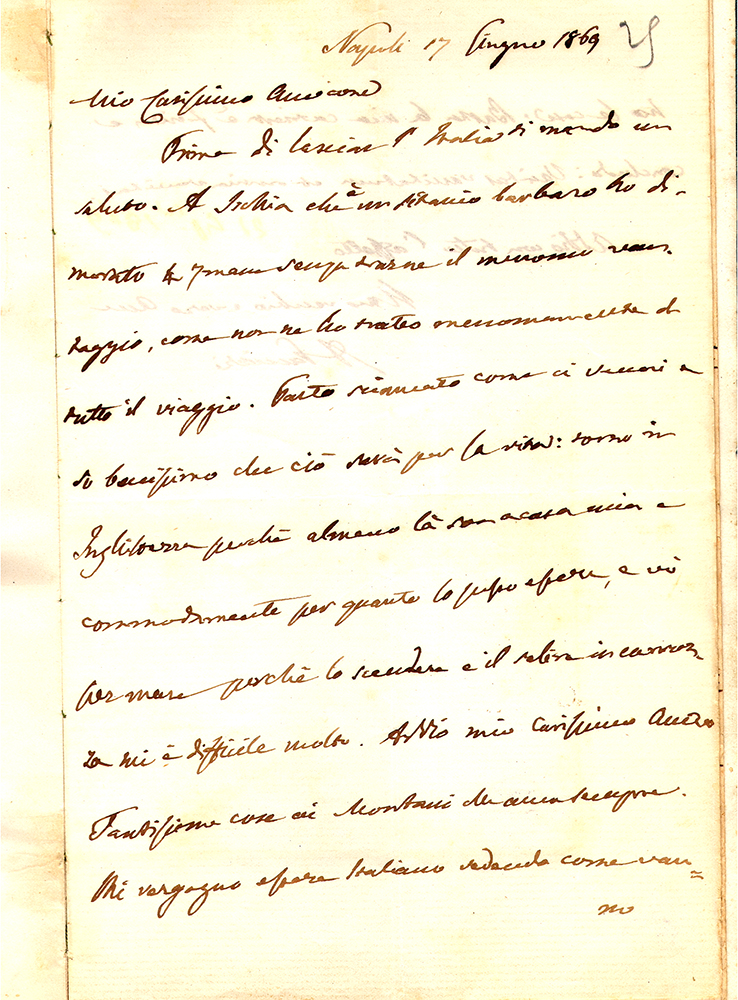 Napoli 17 Giugno 1869 25
Mio Carissimo Amicone
Prima di lasciar l'Italia ti mando un
saluto. A Ischia che è un sito barbaro ho di-
morato senza trarne il menomo van-
taggio, come non ne ho tratto menomamente da
tutto il viaggio. Parto sciancato come ci venni e
so benissimo che ciò sarà per la vita: torno in
Inghilterra perchè almeno là son a casa mia e
commodamente per quanto lo posso essere, e vò
per mare perchè lo scendere e il salire in carroz-
za mi è difficile molto. Addio mio Carissimo Amico
Tantissime cose ai Montani che amo sempre.
Mi vergogno essere Italiano vedendo come van=
no